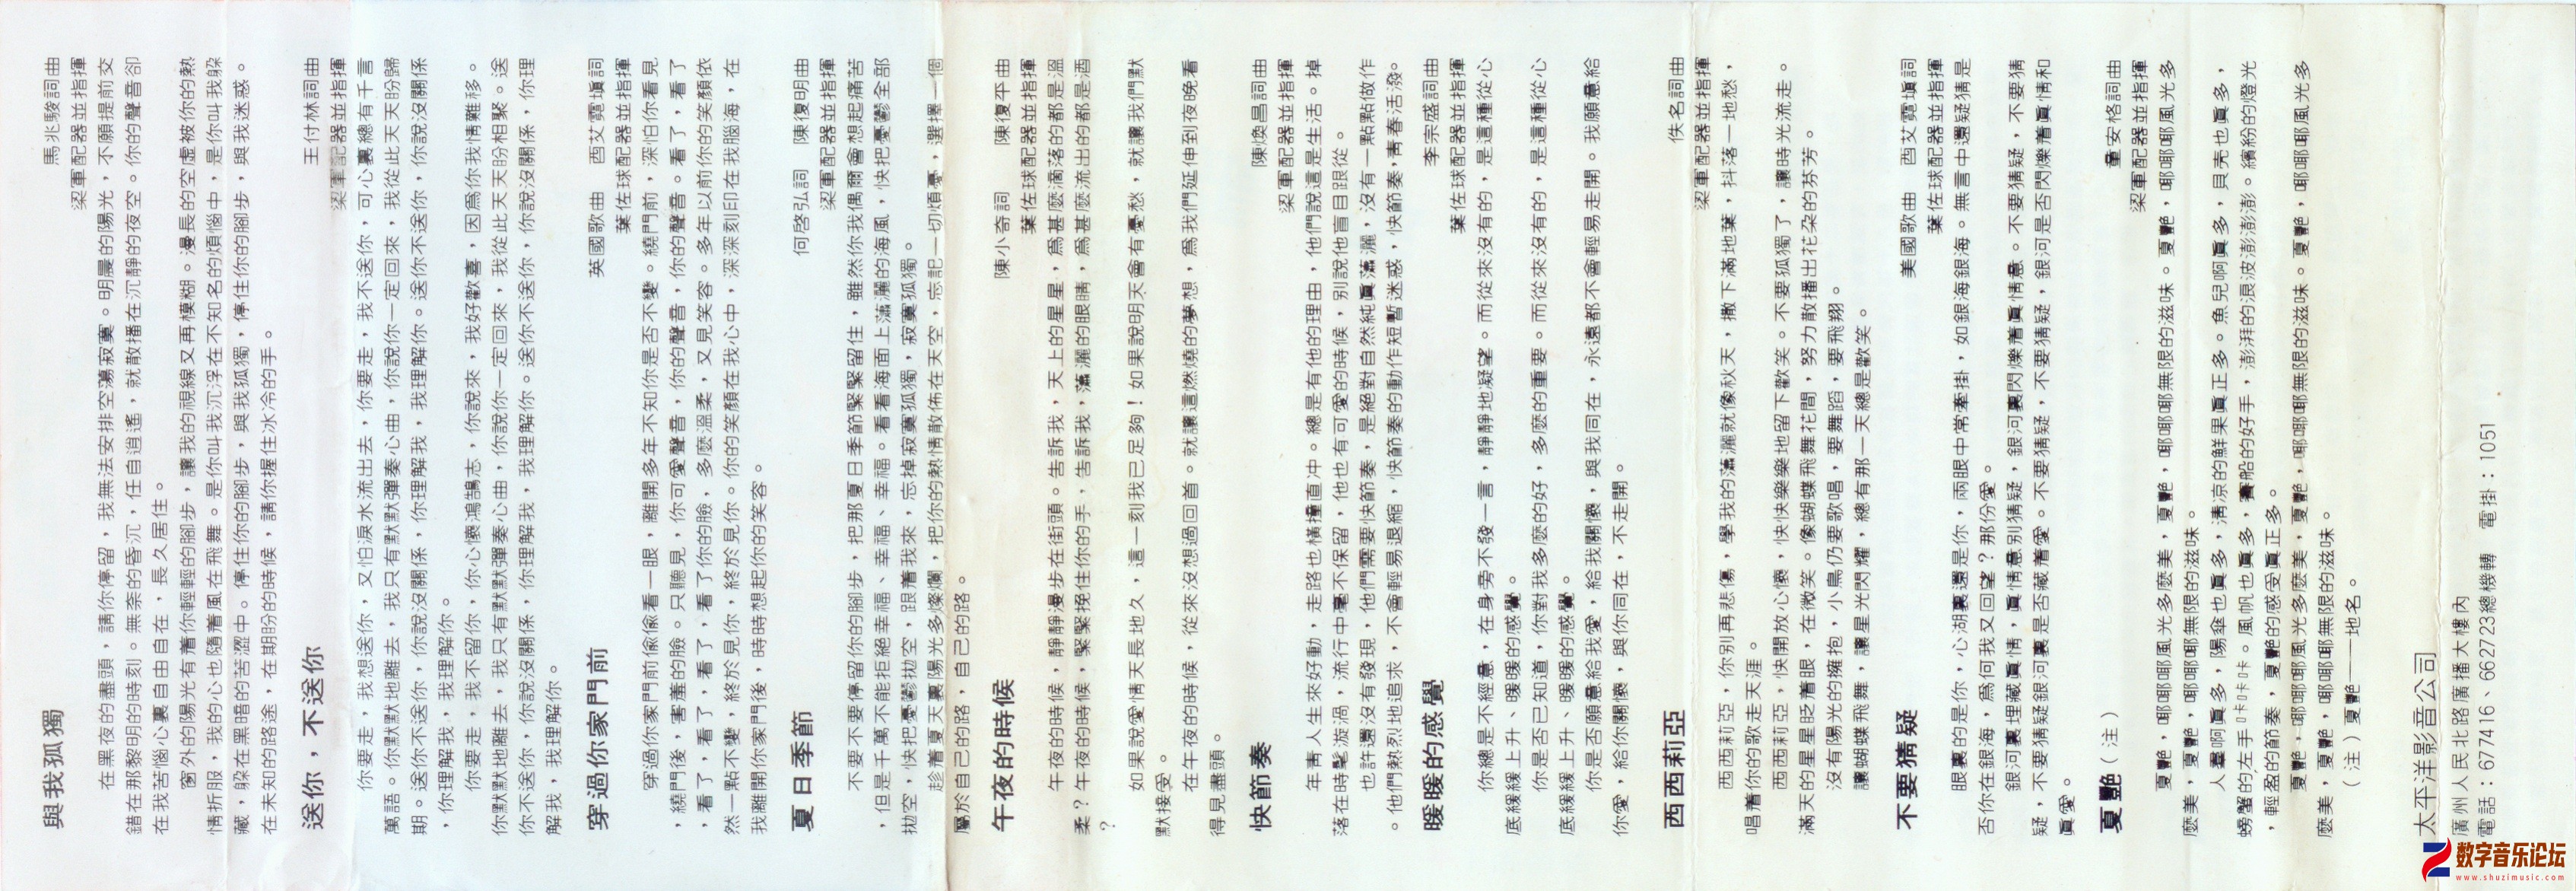 與我孤獨
馬兆駿詞曲
梁軍配器並指揮
在黑夜的盡頭，請你停留，我無法安排空蕩寂寞。明晨的陽光，不願提前交
錯在那黎明的時刻。無奈的昏沉，任自逍遙，就散播在沉靜的夜空。你的聲音卻
在我苦惱心裏自由自在，長久居住。
窗外的陽光有着你輕輕的腳步，讓我的視線又再模糊。漫長的空虛被你的熱
情折服，我的心也隨着風在飛舞。是你叫我沉浮在不知名的煩惱中，是你叫我躲
藏，躲在黑暗的苦澀中。停住你的腳步，與我孤獨，停住你的腳步，與我迷惑。
在未知的路途，在期盼的時候，請你握住冰冷的手。
送你，不送你
王付林詞曲
梁軍配器並指揮
你要走，我想送你，又怕淚水流出去，你要走，我不送你，可心裏總有千言
萬語。你默默地離去，我只有默默彈奏心曲，你說你一定回來，我從此天天盼歸
期。送你不送你，你說沒關係，你理解我，我理解你。送你不送你，你說沒關係
，你理解我，我理解你。
你要走，我不留你，你心懷鴻鵠志，你說來，我好歡喜，因爲你我情難移。
你默默地離去，我只有默默彈奏心曲，你說你一定回來，我從此天天盼相聚。送
你不送你，你說沒關係，你理解我，我理解你。送你不送你，你說沒關係，你理
解我，我理解你。
穿過你家門前
英國歌曲　酉艾霓塡詞
葉佐球配器並指揮
穿過你家門前偷偸看一眼，離開多年不知你是否不變。繞門前，深怕你看見
，繞門後，害羞的臉。只聽見，你可愛聲音，你的聲音，你的聲音。看了，看了
，看了，看了，看了，看了你的臉，多麼溫柔，又見笑容。多年以前你的笑顏依
然一點不變，終於見你，終於見你。你的笑顏在我心中，深深刻印在我腦海，在
我離開你家門後，時時想起你的笑容。
夏日季節
何啓弘詞　陳復明曲
梁軍配器並指揮
不要不要停留你的腳步，把那夏日季節緊緊留住，雖然你我偶爾會想起痛苦
，但是千萬不能拒絕幸福、幸福、幸福。看看海面上瀟灑的海風，快把憂鬱全部
拋空，快把憂鬱拋空，跟着我來，忘掉寂寞孤獨，寂寞孤獨。
趁着夏天裏陽光多燦爛，把你的熱情散佈在天空，忘記一切煩憂，選擇一個
屬於自己的路，自己的路。
午夜的時候
陳小奇詞　陳復平曲
葉佐球配器並指揮
午夜的時候，靜靜漫步在街頭。告訴我，天上的星星，爲甚麼滴落的都是溫
柔？午夜的時候，緊緊挽住你的手，告訴我，瀟灑的眼睛，爲甚麼流出的都是酒
？
如果說愛情天長地久，這一刻我已足夠！如果說明天會有憂愁，就讓我們默
默接受。
在午夜的時候，從來沒想過回首。就讓這燃燒的夢想，爲我們延伸到夜晚看
得見盡頭。
快節奏
陳煥昌詞曲
梁軍配器並指揮
年靑人生來好動，走路也橫撞直冲。總是有他的理由，他們說這是生活。掉
落在時髦漩渦，流行中毫不保留，他也有可愛的時候，別說他盲目跟從。
也許還沒有發現，他們需要快節奏，是絕對自然純眞瀟灑，沒有一點點做作
。他們熱烈地追求，不會輕易退縮，快節奏的動作短暫迷惑，快節奏，靑春活潑。
暖暖的感覺
李宗盛詞曲
葉佐球配器並指揮
你總是不經意，在身旁不發一言，靜靜地凝望。而從來沒有的，是這種從心
底緩緩上升、暖暖的感覺。
你是否已知道，你對我多麼的好，多麼的重要。而從來沒有的，是這種從心
底緩緩上升、暖暖的感覺。
你是否願意給我愛，給我關懷，與我同在，永遠都不會輕易走開。我願意給
你愛，給你關懷，與你同在，不走開。
西西莉亞
佚名詞曲
梁軍配器並指揮
西西莉亞，你別再悲傷，學我的瀟灑就像秋天，撒下滿地葉，抖落一地愁，
唱着你的歌走天涯。
西西莉亞，快開放心懷，快快樂樂地留下歡笑。不要孤獨了，讓時光流走。
滿天的星星眨着眼，在微笑。像蝴蝶飛舞花間，努力散播出花朵的芬芳。
沒有陽光的擁抱，小鳥仍要歌唱，要舞蹈，要飛翔。
讓蝴蝶飛舞，讓星光閃耀，總有那一天總是歡笑。
不要猜疑
美國歌曲　酉艾霓塡詞
葉佐球配器並指揮
眼裏的是你，心湖裏還是你，兩眼中常牽掛，如銀海海。無言中還疑猜是
否你在銀海，爲何我又回望？那份愛。
銀河裏埋藏眞情，眞情意別猜疑，銀河裏閃爍着眞情意。不要猜疑，不要猜
疑，不要猜疑銀河裏是否藏着愛。不要猜疑，不要猜疑，銀河是否閃爍着眞情和
眞愛。
夏艷（注）
童安格詞曲
梁軍配器並指揮
夏艷，啷啷啷風光多麼美，夏艷，啷啷啷無限的滋味。夏艷，啷啷啷風光多
麼美，夏艷，啷啷啷無限的滋味。
人羣啊眞多，陽傘也眞多，淸凉的鮮果眞正多。魚兒啊眞多，貝壳也眞多，
螃蟹的左手咔咔咔。風帆也眞多，賽船的好手，澎湃的浪波澎澎澎。繽紛的燈光
，輕盈的節奏，夏艷的感受眞正多。
夏艷，啷啷啷風光多麼美，夏艷，啷啷啷無限的滋味。夏艷，啷啷啷風光多
麼美，夏艷，啷啷啷無限的滋味。
（注）夏艷——地名。
太平洋影音公司
廣州人民北路廣播大樓內
電話：677416、662723總機轉　電掛：1051
数字音乐论坛
www.shuzimusic.com